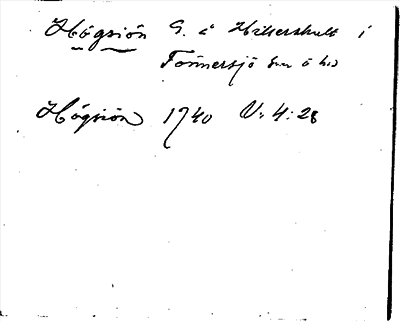 Högsjön G. i Hilleshult i
Tönnersjö sn o hd
Högsiön 1740 V: 4: 28